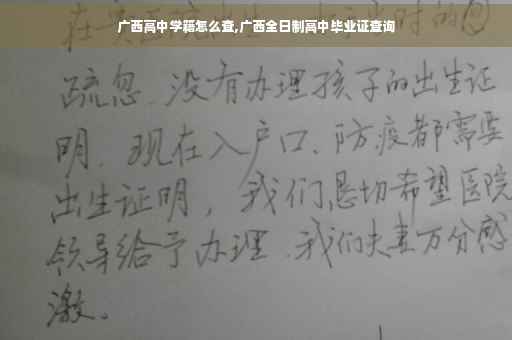 广西高中学籍怎么查,广西全日制高中毕业证查询
疏忽、没有办理孩子的出生证
明、现在入户口、防疫都需要
出生证明，我们恳切希望医院
领导给予办理、我们夫妻万分感
激。